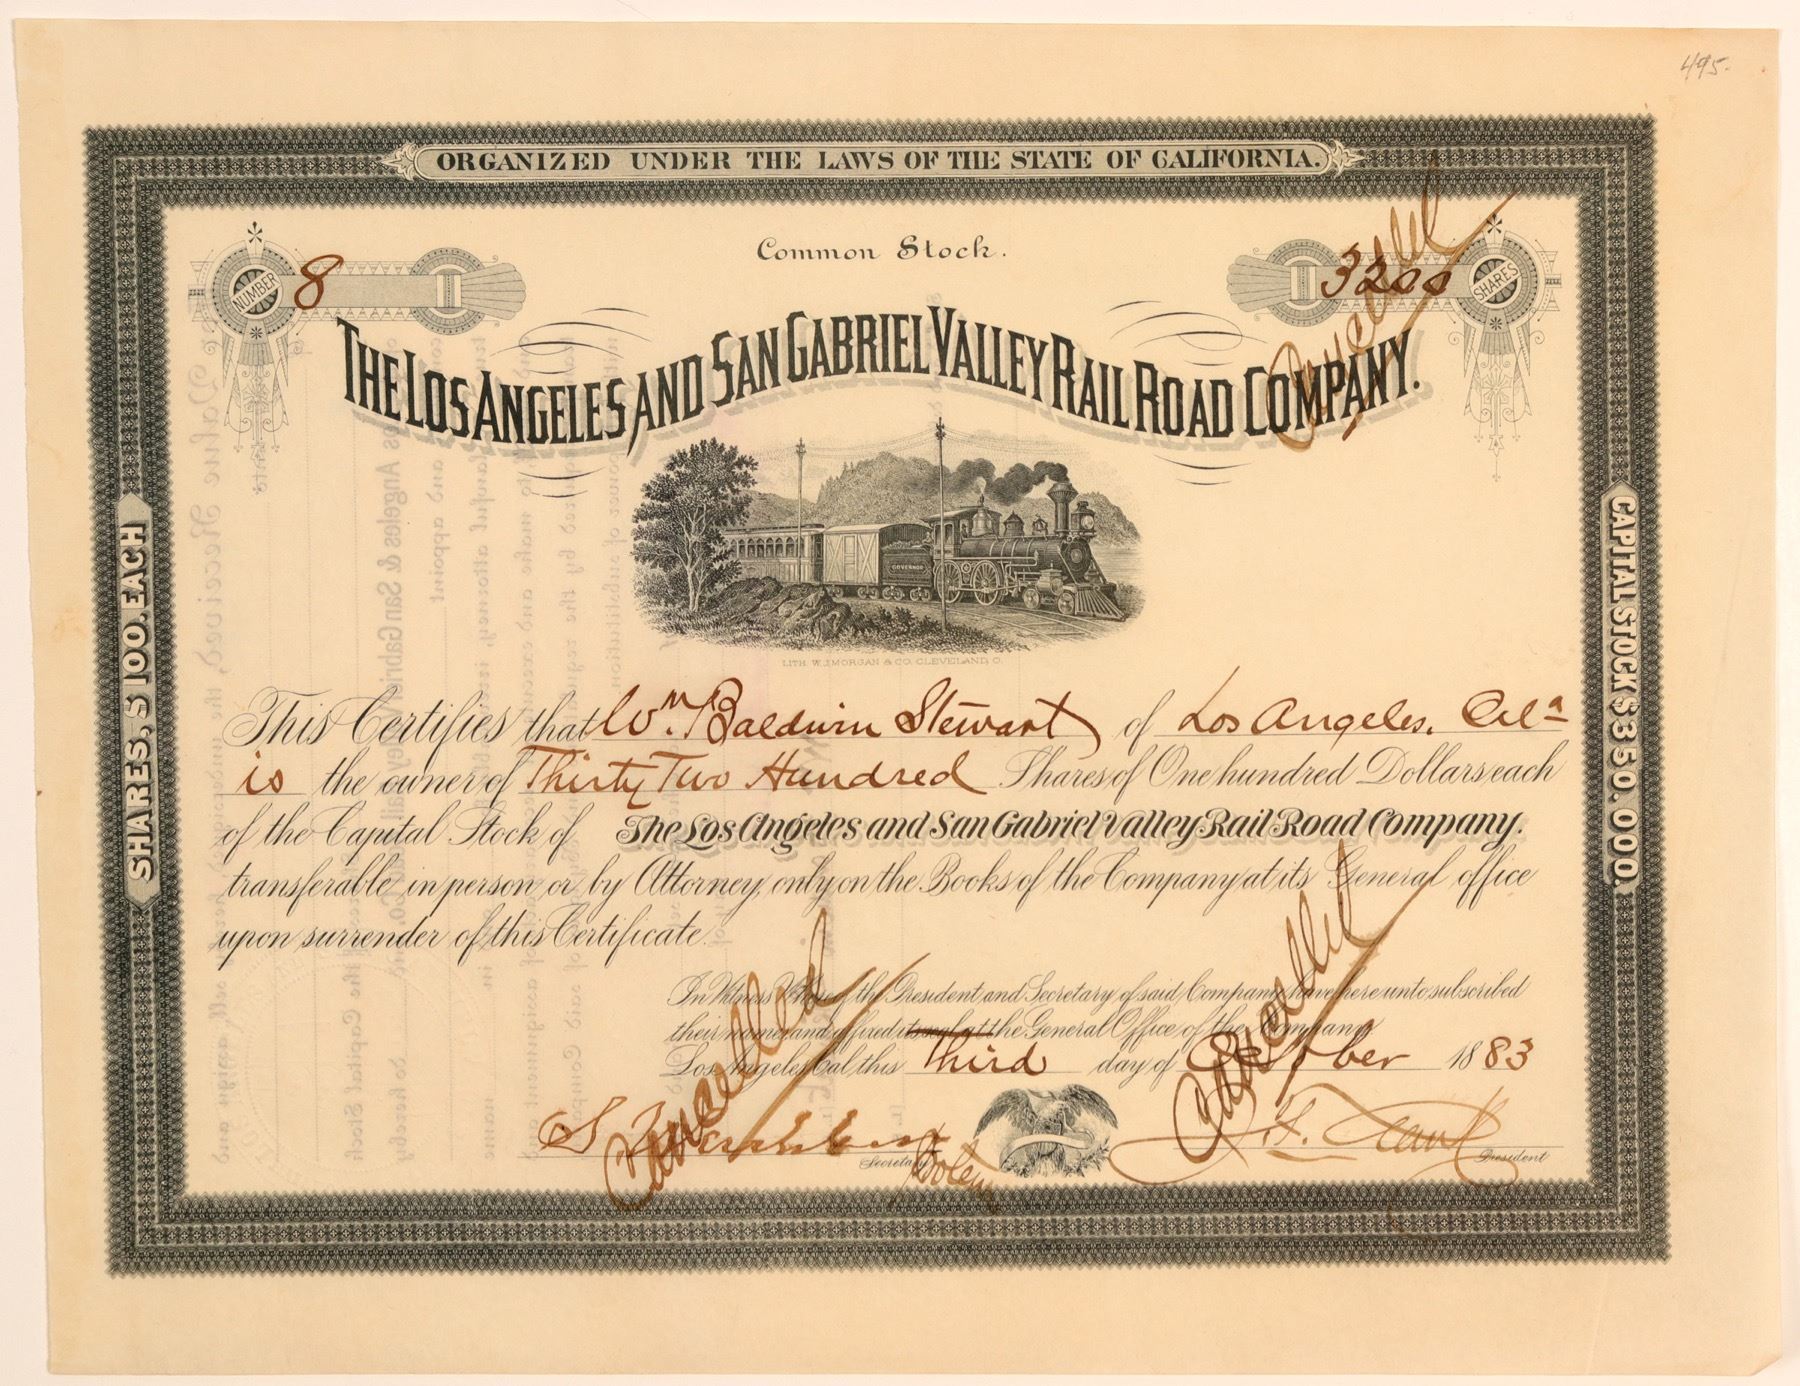 495.
ORGANIZED UNDER THE LAWS OF THE STATE OF CALIFORNIA.
Common Stock.
NUMBER 8
3200 SHARES
Cancelled
THE LOS ANGELES AND SAN GABRIEL VALLEY RAIL ROAD COMPANY.
SHARES, $100. EACH
CAPITAL STOCK $350.000.
GOVERNOR
LITH. W. J. MORGAN & CO. CLEVELAND, O.
This Certifies that Wm. Baldwin Stewart of Los Angeles, Cala
is the owner of Thirty Two Hundred Shares of One hundred Dollars each
of the Capital Stock of The Los Angeles and San Gabriel Valley Rail Road Company.
transferable in person or by Attorney, only on the Books of the Company at its General office
upon surrender of this Certificate.
In Witness Whereof the President and Secretary of said Company have hereunto subscribed
their names and affixed its seal at the General Office of the Company
Los Angeles Cal, this Third day of October 1883
Cancelled
Cancelled
Secretary
President